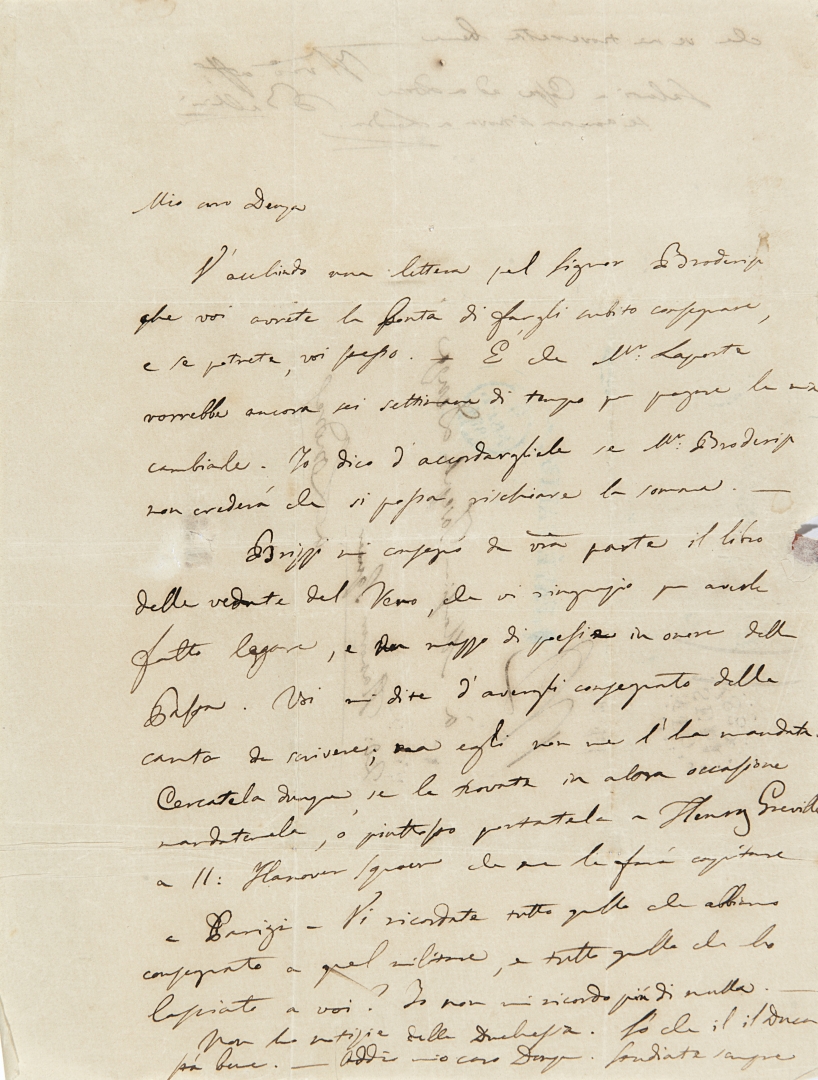 Mio caro Denza
V'accludo una lettera pel Signor Broderip
che voi avrete la bontà di fargli subito consegnare,
e se potrete, voi stesso. — È che Mr. Laporte
vorrebbe ancora sei settimane di tempo per pagare la mia
cambiale. Io dico d'accordargliele se Mr. Broderip
non crederà che si possa rischiare la somma. —
Brizzi mi consegnò da vra parte il libro
delle vedute del Reno, che vi ringrazio per averle
fatto legare, e un mazzo di poesie in onore della
Pasta. Voi mi dite d'avergli consegnato della
carta da scrivere; ma egli non me l'ha mandata.
Cercatela dunque, se la trovate in alcra occasione
mandatemela, o piuttosto portatela a Henry Greville
a 11: Hanover Square che me la farà capitare
a Parigi — Vi ricordate tutto quello che abbiamo
consegnato a quel militare, e tutto quello che ho
lasciato a voi? Io non mi ricordo più di nulla. —
Non ho notizie della Duchessa. So che il il Duca
sta bene. — Addio mio caro Denza. Studiate sempre